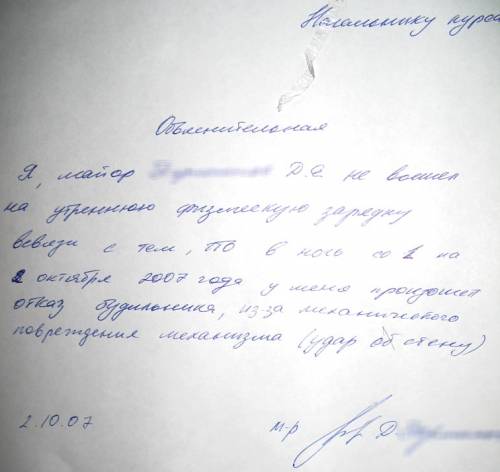 Начальнику курса
Объяснительная
Я, майор Д.С. не вышел
на утреннюю физическую зарядку
всвязи с тем, что в ночь со 1 на
2 октября 2007 года у меня произошел
отказ будильника, из-за механического
повреждения механизма (удар об стену)
2.10.07 м-р Д.